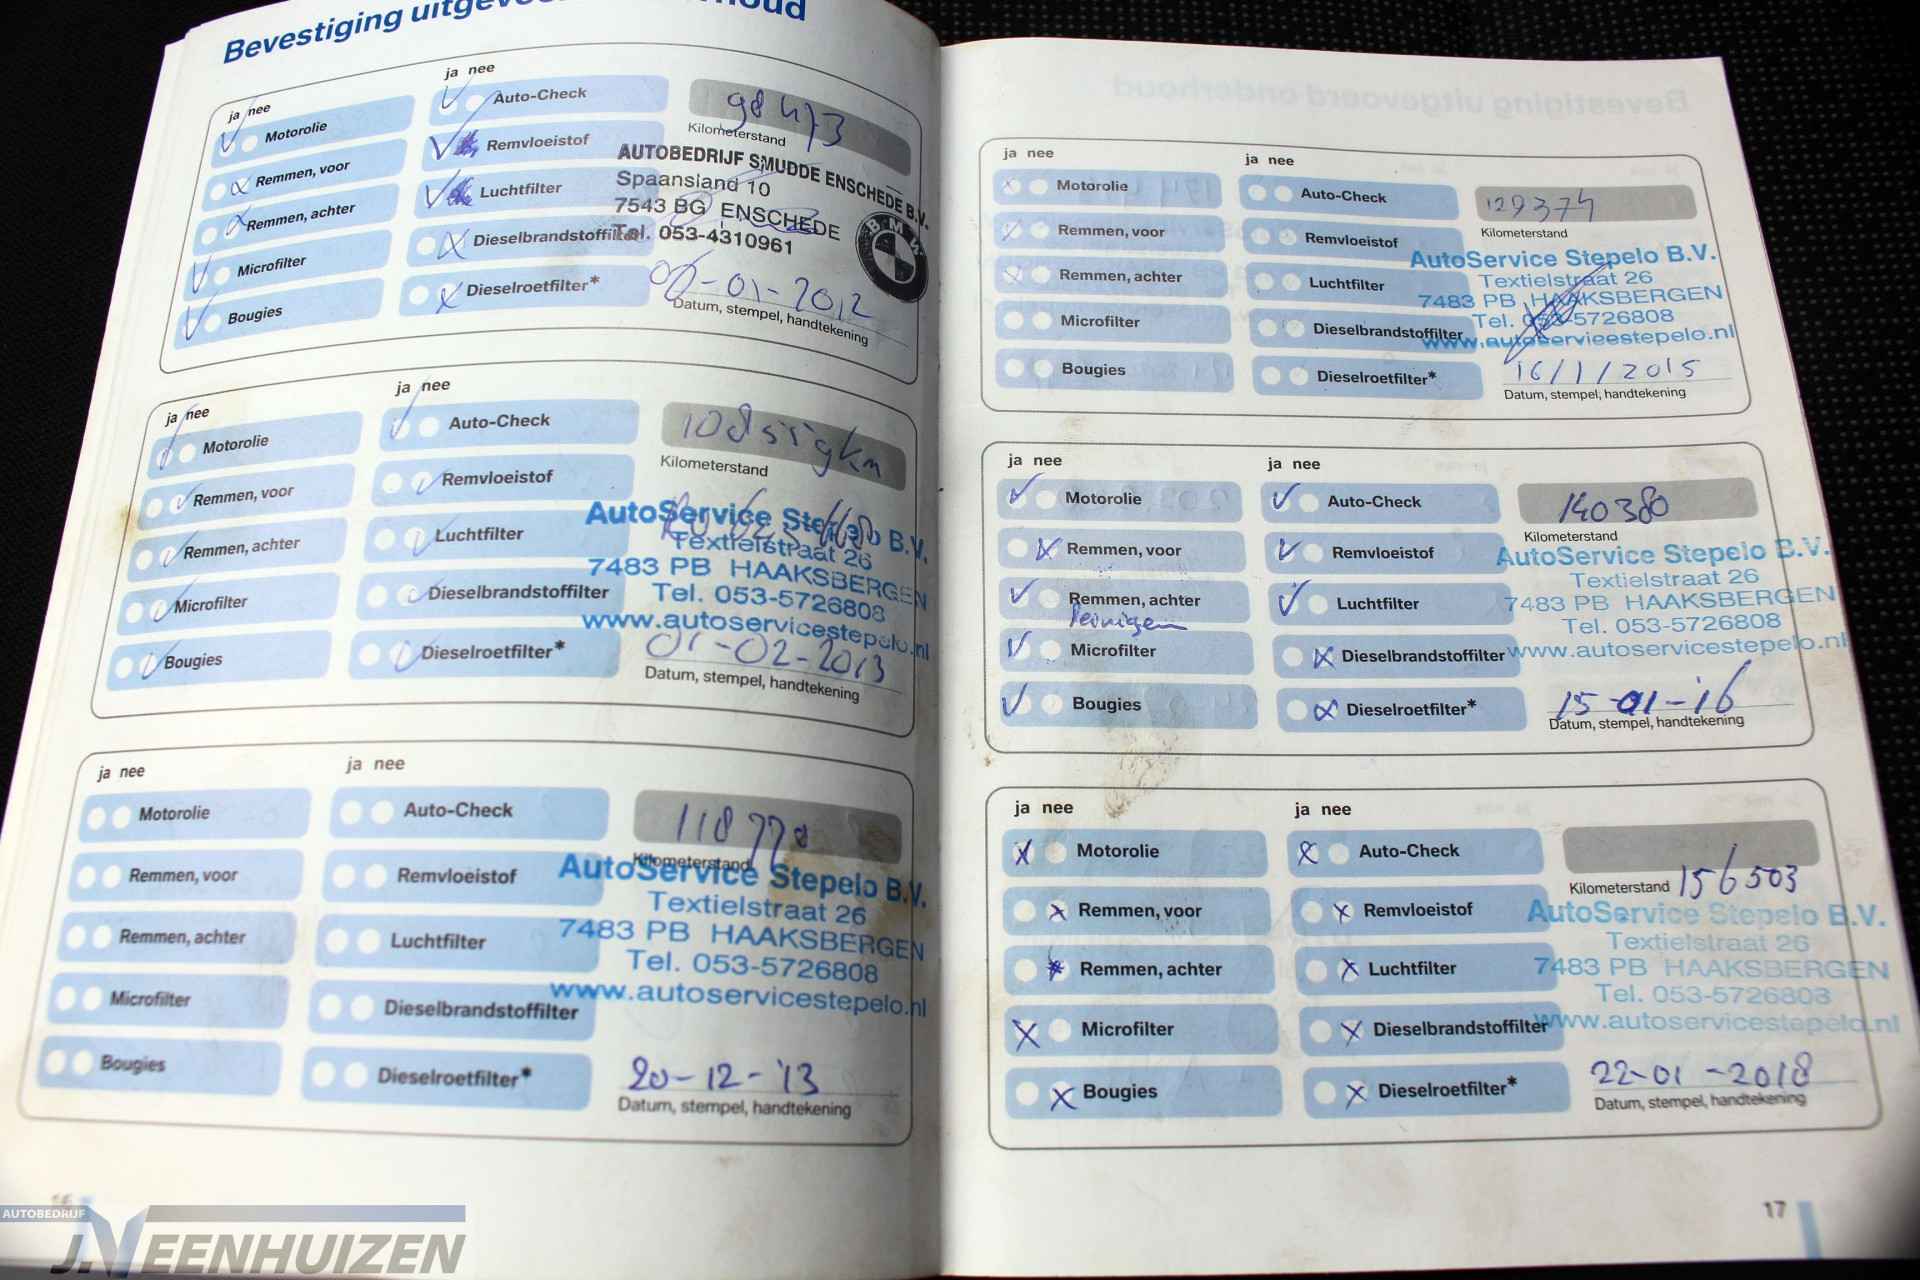 Bevestiging uitgevoerd onderhoud
ja nee
ja nee
Motorolie
Auto-Check
98473
Kilometerstand
Remmen, voor
Remvloeistof
AUTOBEDRIJF SMUDDE ENSCHEDE B.V.
Spaansland 10
Remmen, achter
Luchtfilter
7543 BG ENSCHEDE
BMW
Microfilter
Dieselbrandstoffilter
Tel. 053-4310961
Bougies
Dieselroetfilter*
-01-2012
Datum, stempel, handtekening
ja nee
ja nee
Motorolie
Auto-Check
Kilometerstand
Remmen, voor
Remvloeistof
AutoService Stepelo B.V.
Textielstraat 26
Remmen, achter
Luchtfilter
7483 PB HAAKSBERGEN
Tel. 053-5726808
Microfilter
Dieselbrandstoffilter
www.autoservicestepelo.nl
Bougies
Dieselroetfilter*
01-02-2013
Datum, stempel, handtekening
ja nee
ja nee
Motorolie
Auto-Check
118770
Kilometerstand
Remmen, voor
Remvloeistof
AutoService Stepelo B.V.
Textielstraat 26
Remmen, achter
Luchtfilter
7483 PB HAAKSBERGEN
Tel. 053-5726808
Microfilter
Dieselbrandstoffilter
www.autoservicestepelo.nl
Bougies
Dieselroetfilter*
20-12-'13
Datum, stempel, handtekening
16
ja nee
ja nee
Motorolie
Auto-Check
129374
Kilometerstand
Remmen, voor
Remvloeistof
AutoService Stepelo B.V.
Textielstraat 26
Remmen, achter
Luchtfilter
7483 PB HAAKSBERGEN
Tel. 053-5726808
Microfilter
Dieselbrandstoffilter
www.autoservicestepelo.nl
Bougies
Dieselroetfilter*
16/1/2015
Datum, stempel, handtekening
ja nee
ja nee
Motorolie
Auto-Check
140380
Kilometerstand
Remmen, voor
Remvloeistof
AutoService Stepelo B.V.
Textielstraat 26
Remmen, achter
Luchtfilter
7483 PB HAAKSBERGEN
Reinigen
Tel. 053-5726808
Microfilter
Dieselbrandstoffilter
www.autoservicestepelo.nl
Bougies
Dieselroetfilter*
15-01-'16
Datum, stempel, handtekening
ja nee
ja nee
Motorolie
Auto-Check
Kilometerstand 156503
Remmen, voor
Remvloeistof
AutoService Stepelo B.V.
Textielstraat 26
Remmen, achter
Luchtfilter
7483 PB HAAKSBERGEN
Tel. 053-5726808
Microfilter
Dieselbrandstoffilter
www.autoservicestepelo.nl
Bougies
Dieselroetfilter*
22-01-2018
Datum, stempel, handtekening
17
AUTOBEDRIJF
J.VEENHUIZEN